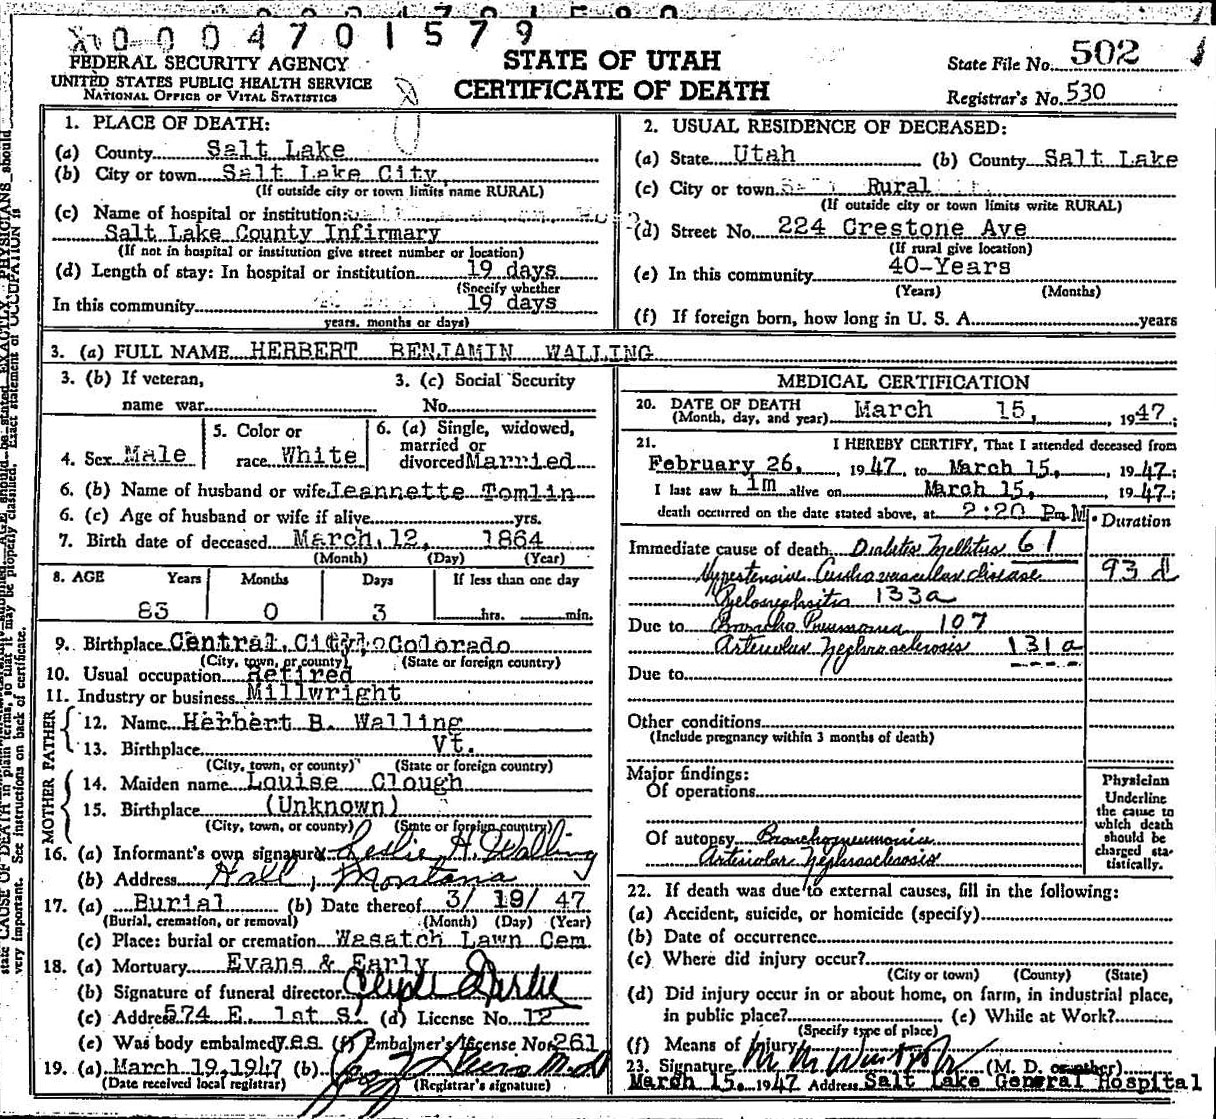 0004701579
FEDERAL SECURITY AGENCY
UNITED STATES PUBLIC HEALTH SERVICE
NATIONAL OFFICE OF VITAL STATISTICS
STATE OF UTAH
CERTIFICATE OF DEATH
State File No. 502
Registrar's No. 530
1. PLACE OF DEATH:
(a) County Salt Lake
(b) City or town Salt Lake City,
(If outside city or town limits name RURAL)
(c) Name of hospital or institution:
Salt Lake County Infirmary
(If not in hospital or institution give street number or location)
(d) Length of stay: In hospital or institution 19 days
(Specify whether
In this community 19 days
years, months or days)
2. USUAL RESIDENCE OF DECEASED:
(a) State Utah (b) County Salt Lake
(c) City or town Rural
(If outside city or town limits write RURAL)
(d) Street No. 224 Crestone Ave
(If rural give location)
(e) In this community 40-Years
(Years) (Months)
(f) If foreign born, how long in U. S. A. years
3. (a) FULL NAME HERBERT BENJAMIN WALLING
3. (b) If veteran,
name war
3. (c) Social Security
No.
4. Sex Male
5. Color or
race White
6. (a) Single, widowed,
married or
divorced Married
6. (b) Name of husband or wife Jeannette Tomlin
6. (c) Age of husband or wife if alive yrs.
7. Birth date of deceased March 12, 1864
(Month) (Day) (Year)
8. AGE Years Months Days If less than one day
83 0 3 hrs. min.
9. Birthplace Central City Colorado
(City, town, or county) (State or foreign country)
10. Usual occupation Retired
11. Industry or business Millwright
FATHER
12. Name Herbert B. Walling
13. Birthplace Vt.
(City, town, or county) (State or foreign country)
MOTHER
14. Maiden name Louise Clough
15. Birthplace (Unknown)
(City, town, or county) (State or foreign country)
16. (a) Informant's own signature Leslie H. Walling
(b) Address Hall, Montana
17. (a) Burial (b) Date thereof 3/ 19/ 47
(Burial, cremation, or removal) (Month) (Day) (Year)
(c) Place: burial or cremation Wasatch Lawn Cem
18. (a) Mortuary Evans & Early
(b) Signature of funeral director
(c) Address 574 E. 1st S. (d) License No. 12
(e) Was body embalmed yes (f) Embalmer's license No. 261
19. (a) March 19, 1947 (b)
(Date received local registrar) (Registrar's signature)
MEDICAL CERTIFICATION
20. DATE OF DEATH
(Month, day, and year) March 15, 1947:
21. I HEREBY CERTIFY, That I attended deceased from
February 26, 1947, to March 15, 1947:
I last saw h im alive on March 15, 1947:
death occurred on the date stated above, at 2:20 Pm M
Duration
Immediate cause of death Diabetes Mellitus 61
Hypertensive Cardiovascular disease 93 d
Pyelonephritis 133a
Due to Broncho Pneumonia 107
Arteriolar Nephrosclerosis 131a
Due to
Other conditions
(Include pregnancy within 3 months of death)
Major findings:
Of operations
Of autopsy Bronchopneumonia
Arteriolar Nephrosclerosis
Physician
Underline
the cause to
which death
should be
charged sta-
tistically.
22. If death was due to external causes, fill in the following:
(a) Accident, suicide, or homicide (specify)
(b) Date of occurrence
(c) Where did injury occur?
(City or town) (County) (State)
(d) Did injury occur in or about home, on farm, in industrial place,
in public place? (e) While at Work?
(Specify type of place)
(f) Means of Injury
23. Signature (M. D. or other)
March 15, 1947 Address Salt Lake General Hospital